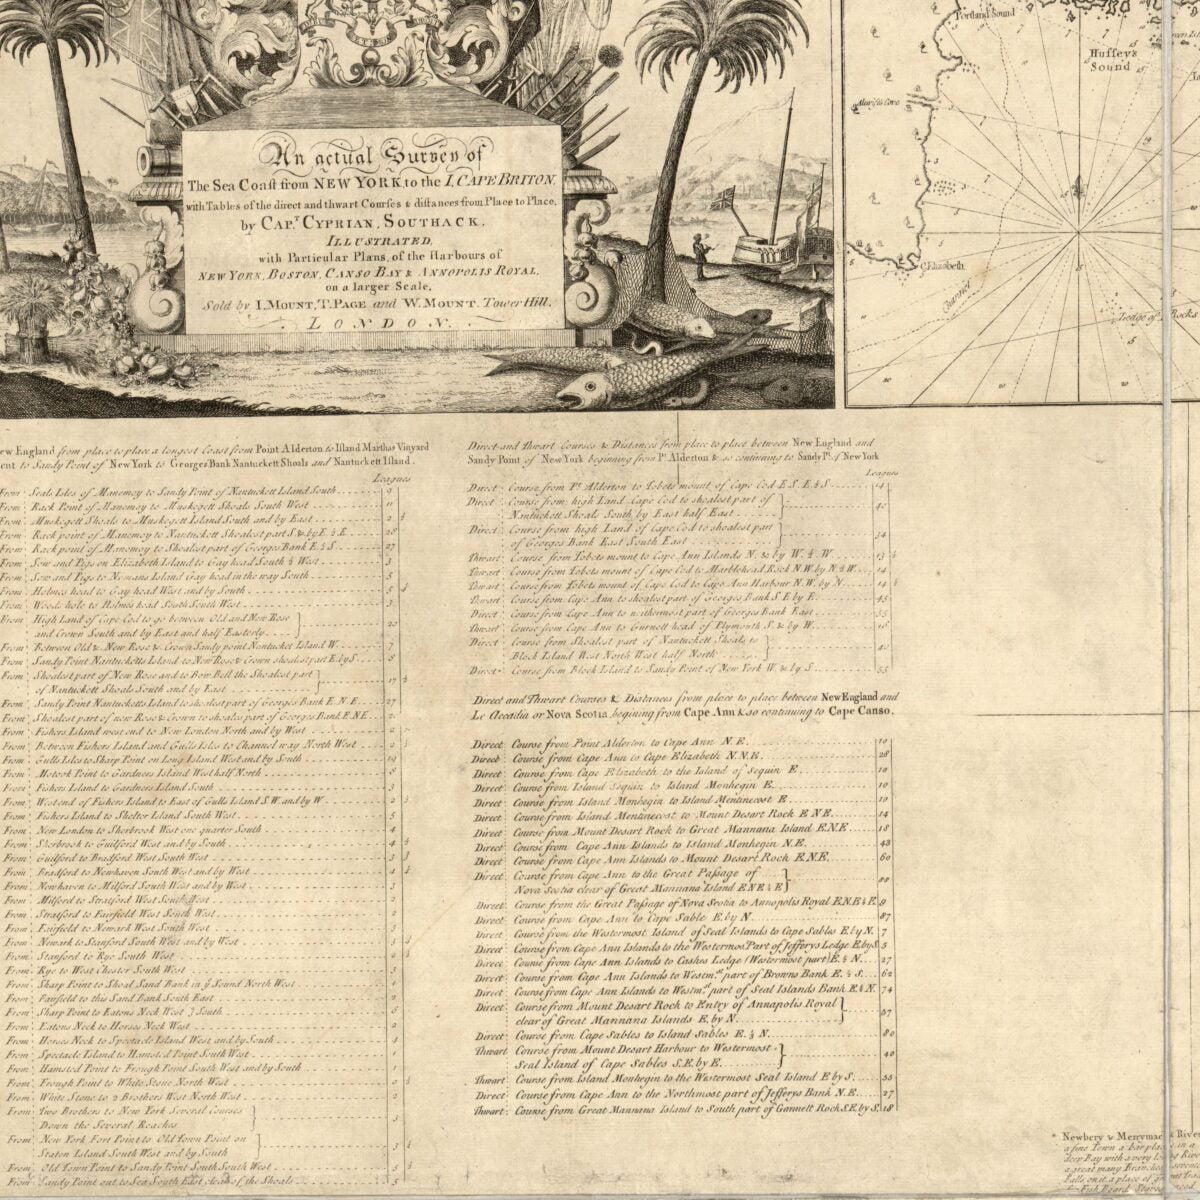 An actual Survey of
The Sea Coast from NEW YORK to the I. CAPE BRITON,
with Tables of the direct and thwart Courses & distances from Place to Place,
by CAP.T CYPRIAN, SOUTHACK.
ILLUSTRATED,
with Particular Plans, of the Harbours of
NEW YORK, BOSTON, CANSO BAY & ANNOPOLIS ROYAL,
on a larger Scale.
Sold by I. MOUNT, T. PAGE and W. MOUNT. Tower Hill.
LONDON.
Portland Sound
Hussey's
Sound
C. Elizabeth
Channel
Ledge of Rocks
ew England from place to place a longest Coast from Point Alderton to Island Marthas Vinyard
ent to Sandy Point of New York to Georges Bank Nantuckett Shoals and Nantuckett Island.
Leagues
From Seals Isles of Manemoy to Sandy Point of Nantuckett Island South 9
From Rack Point of Manemoy to Muskegett Shoals South West 11
From Muskegett Shoals to Muskegett Island South and by East 2
From Rack point of Manemoy to Nantuckett Shoalest part S. & by E. ½ E. 28
From Rack point of Manemoy to Shoalest part of Georges Bank E. ½ S. 27
From Sow and Pigs on Elizabeth Island to Gay head South ½ West 3
From Sow and Pigs to Nomans Island Gay head in the way South 5
From Holmes head to Gay head West and by South 5
From Woods hole to Holmes head South South West 3
From High Land of Cape Cod to go between Old and New Rose
and Crown South and by East and half Easterly 20
From Between Old & New Rose & Crown Sandy point Nantucket Island W. 7
From Sandy Point Nantucketts Island to New Rose & Crown shoalest part E. by S. 8
From Shoalest part of New Rose and to Bow Bell the Shoalest part
of Nantuckett Shoals South and by East 17
From Sandy Point Nantucketts Island to shoalest part of Georges Bank E. N. E. 27
From Shoalest part of new Rose & Crown to shoales part of Georges Bank E.N.E.
From Fishers Island west end to New London North and by West 2
From Between Fishers Island and Gulls Isles to Channel way North West 2
From Gulls Isles to Sharp Point on Long Island West and by South 19
From Motook Point to Gardners Island West half North 8
From Fishers Island to Gardners Island South 3
From West end of Fishers Island to East of Gulls Island S.W. and by W 2
From Fishers Island to Shelter Island South West 5
From New London to Sherbrook West one quarter South 4
From Sherbrook to Guilford West and by South 4
From Guilford to Bradford West South West 3
From Bradford to Newhaven South West and by West 4
From Newhaven to Milford South West and by West 3
From Milford to Stratford West South West 2
From Stratford to Fairfield West South West 2
From Fairfield to Newark West South West 3
From Newark to Stanford South West and by West 3
From Stanford to Rye South West 2
From Rye to West Chester South West 3
From Sharp Point to Shoal Sand Bank in ỹ Sound North West 1
From Fairfield to this Sand Bank South East 2
From Sharp Point to Eatons Neck West ½ South 6
From Eatons Neck to Horses Neck West 2
From Horses Neck to Spectacle Island West and by South 4
From Spectacle Island to Hamsted Point South West 1
From Hamsted Point to Frough Point South West and by South 1
From Frough Point to White Stone North West 0
From White Stone to 2 Brothers West North West 2
From Two Brothers to New York Several Courses
Down the Several Reaches 3
From New York Fort Point to Old Town Point on
Staten Island South West and by South 3
From Old Town Point to Sandy Point South South West 5
From Sandy Point out to Sea South East clear of the Shoals 5
Direct and Thwart Courses & Distances from place to place between New England and
Sandy Point of New York beginning from Pt. Alderton & so continuing to Sandy Pt. of New York
Leagues
Direct Course from Pt. Alderton to Tobets mount of Cape Cod E.S.E. ½ S. 14
Direct Course from high Land Cape Cod to shoalest part of
Nantuckett Shoals South by East half East 40
Direct Course from high Land of Cape Cod to shoalest part
of Georges Bank East South East 34
Thwart Course from Tobets mount to Cape Ann Islands N. & by W. ½ W. 13
Thwart Course from Tobets mount of Cape Cod to Marblehead Rock N.W. by N. ½ W. 14
Thwart Course from Tobets mount of Cape Cod to Cape Ann Harbour N.W. by N. 14
Thwart Course from Cape Ann to shoalest part of Georges Bank S.E. by E. 45
Direct Course from Cape Ann to neithermost part of Georges Bank East 55
Thwart Course from Cape Ann to Gurnett head of Plymouth S. & by W. 16
Direct Course from Shoalest part of Nantuckett Shoals to
Block Island West North West half North 40
Direct Course from Block Island to Sandy Point of New York W. & by S. 55
Direct and Thwart Courses & Distances from place to place between New England and
Le Accadia or Nova Scotia begining from Cape Ann & so continuing to Cape Canso.
Direct Course from Point Alderton to Cape Ann N.E. 10
Direct Course from Cape Ann to Cape Elizabeth N.N.E. 28
Direct Course from Cape Elizabeth to the Island of Sequin E 10
Direct Course from Island Sequin to Island Monhegin E. 10
Direct Course from Island Monhegin to Island Mentinecost E 10
Direct Course from Island Mentinecost to Mount Desart Rock E NE 14
Direct Course from Mount Desart Rock to Great Mannana Island E.N.E 18
Direct Course from Cape Ann Islands to Island Monhegin N.E. 48
Direct Course from Cape Ann Islands to Mount Desart Rock E.N.E. 60
Direct Course from Cape Ann to the Great Passage of
Nova Scotia clear of Great Mannana Island E NE ½ E
Direct Course from the Great Passage of Nova Scotia to Annopolis Royal E.N.E ½ E. 9
Direct Course from Cape Ann to Cape Sable E. by N. 87
Direct Course from the Westermost Island of Seal Islands to Cape Sables E. by N. 7
Direct Course from Cape Ann Islands to the Westermos. Part of Jefferys Ledge E. by S. 5
Direct Course from Cape Ann Islands to Cashes Ledge (Westermost part) E. ½ N. 27
Direct Course from Cape Ann Islands to Westm.st part of Browns Bank E. ½ S. 62
Direct Course from Cape Ann Islands to Westm.st part of Seal Islands Bank E. ½ N. 74
Direct Course from Mount Desart Rock to Entry of Annapolis Royal
clear of Great Mannana Islands E. by N. 37
Direct Course from Cape Sables to Island Sables E. ½ N. 80
Thwart Course from Mount Desart Harbour to Westermost
Seal Island of Cape Sables S.E. by E. 40
Thwart Course from Island Monhegin to the Westermost Seal Island E by S. 55
Direct Course from Cape Ann to the Northmost part of Jefferys Bank N.E. 27
Thwart Course from Great Mannana Island to South part of Gannett Rock S.E. by S. 18
* Newbery & Merrymack River
a fine Town a bar place in a
deep Bay with a very long River
a great many Branches several
Falls on it, a place of great Trade